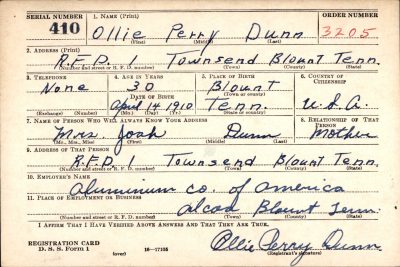 SERIAL NUMBER 1. NAME (Print) ORDER NUMBER
410 Ollie Perry Dunn 3205
(First) (Middle) (Last)
2. ADDRESS (Print)
R.F.D. 1 Townsend Blount Tenn.
(Number and street or R. F. D. number) (Town) (County) (State)
3. TELEPHONE 4. AGE IN YEARS 5. PLACE OF BIRTH 6. COUNTRY OF CITIZENSHIP
None 30 Blount
DATE OF BIRTH (Town or county)
April 14 1910 Tenn. U.S.A.
(Exchange) (Number) (Mo.) (Day) (Yr.) (State or country)
7. NAME OF PERSON WHO WILL ALWAYS KNOW YOUR ADDRESS 8. RELATIONSHIP OF THAT PERSON
Mrs. Dunn Mother
(Mr., Mrs., Miss) (First) (Middle) (Last)
9. ADDRESS OF THAT PERSON
R.F.D. 1 Townsend Blount Tenn.
(Number and street or R. F. D. number) (Town) (County) (State)
10. EMPLOYER'S NAME
Aluminum Co. of America
11. PLACE OF EMPLOYMENT OR BUSINESS
Alcoa Blount Tenn.
(Number and street or R. F. D. number) (Town) (County) (State)
I AFFIRM THAT I HAVE VERIFIED ABOVE ANSWERS AND THAT THEY ARE TRUE.
REGISTRATION CARD
D. S. S. Form 1 (over) 16—17105 Ollie Perry Dunn
(Registrant's signature)